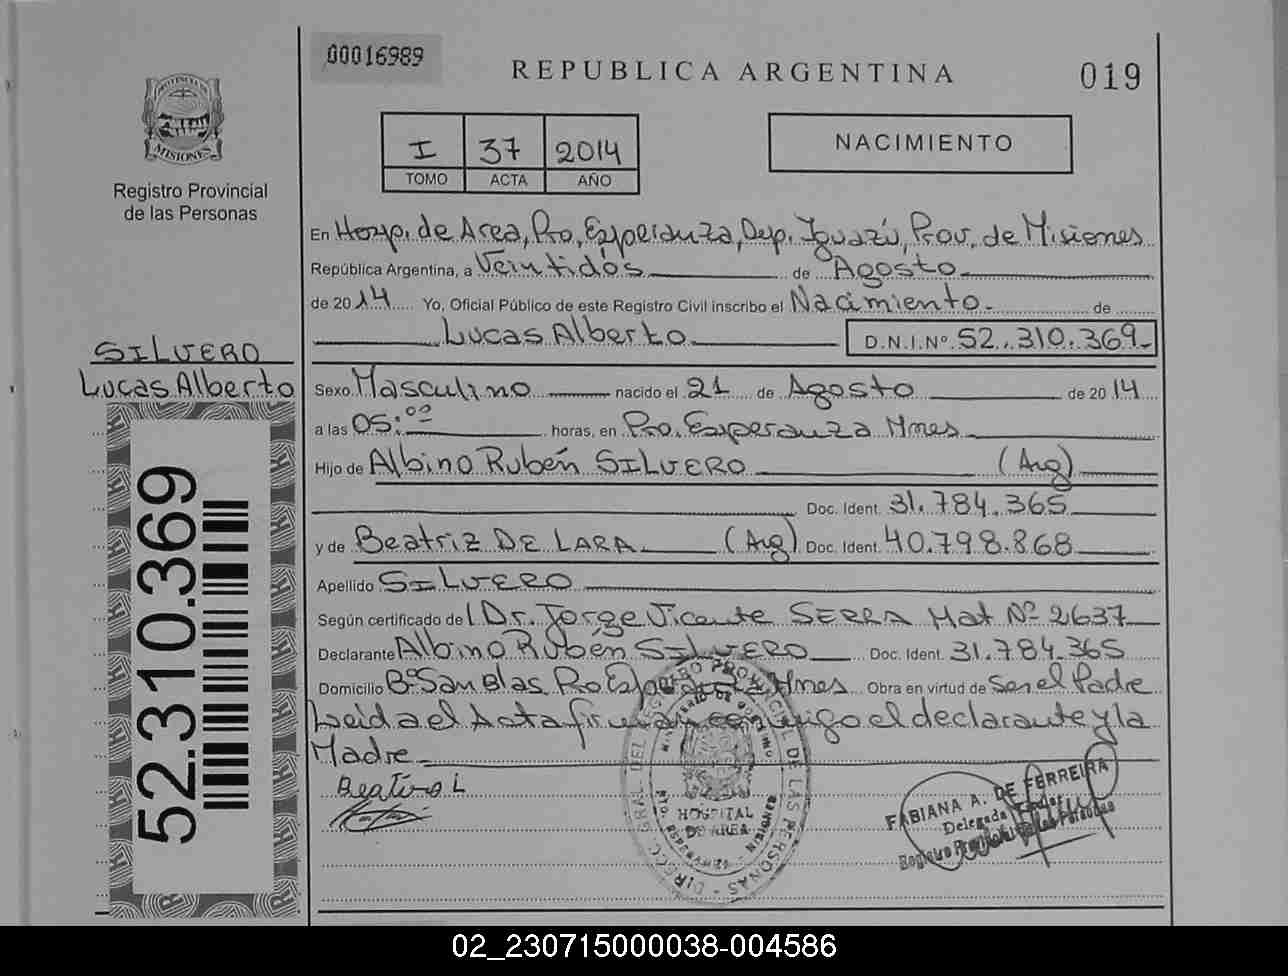 00016989
REPUBLICA ARGENTINA
019
PROVINCIA DE
MISIONES
Registro Provincial
de las Personas
I 37 2014
TOMO ACTA AÑO
NACIMIENTO
En Hosp. de Area, Pto, Esperanza, Dep. Iguazú, Prov. de Misiones
República Argentina, a Veintidós de Agosto
de 2014 Yo, Oficial Público de este Registro Civil inscribo el Nacimiento de
Lucas Alberto D.N.I.Nº 52.310.369
SILVERO
Lucas Alberto
Sexo Masculino nacido el 21 de Agosto de 2014
a las 05:00 horas, en Pto. Esperanza Mnes
Hijo de Albino Rubén SILVERO (Arg)
Doc. Ident. 31.784.365
y de Beatriz DE LARA (Arg) Doc. Ident. 40.798.868
Apellido SILVERO
Según certificado de l Dr. Jorge Vicente SERRA Mat Nº 2637
Declarante Albino Rubén SILVERO Doc. Ident. 31.784.365
Domicilio Bº San Blas Pto Esperanza Mnes Obra en virtud de Ser el Padre
Leida el Acta firman conmigo el declarante y la
Madre
52.310.369
DIRECC. GRAL. DEL REGISTRO PROVINCIAL DE LAS PERSONAS
MINISTERIO DE GOBIERNO
HOSPITAL
DE AREA
PTO ESPERANZA - MISIONES
FABIANA A. DE FERREIRA
Delegada
Registro Provincial de las Personas
02_230715000038-004586